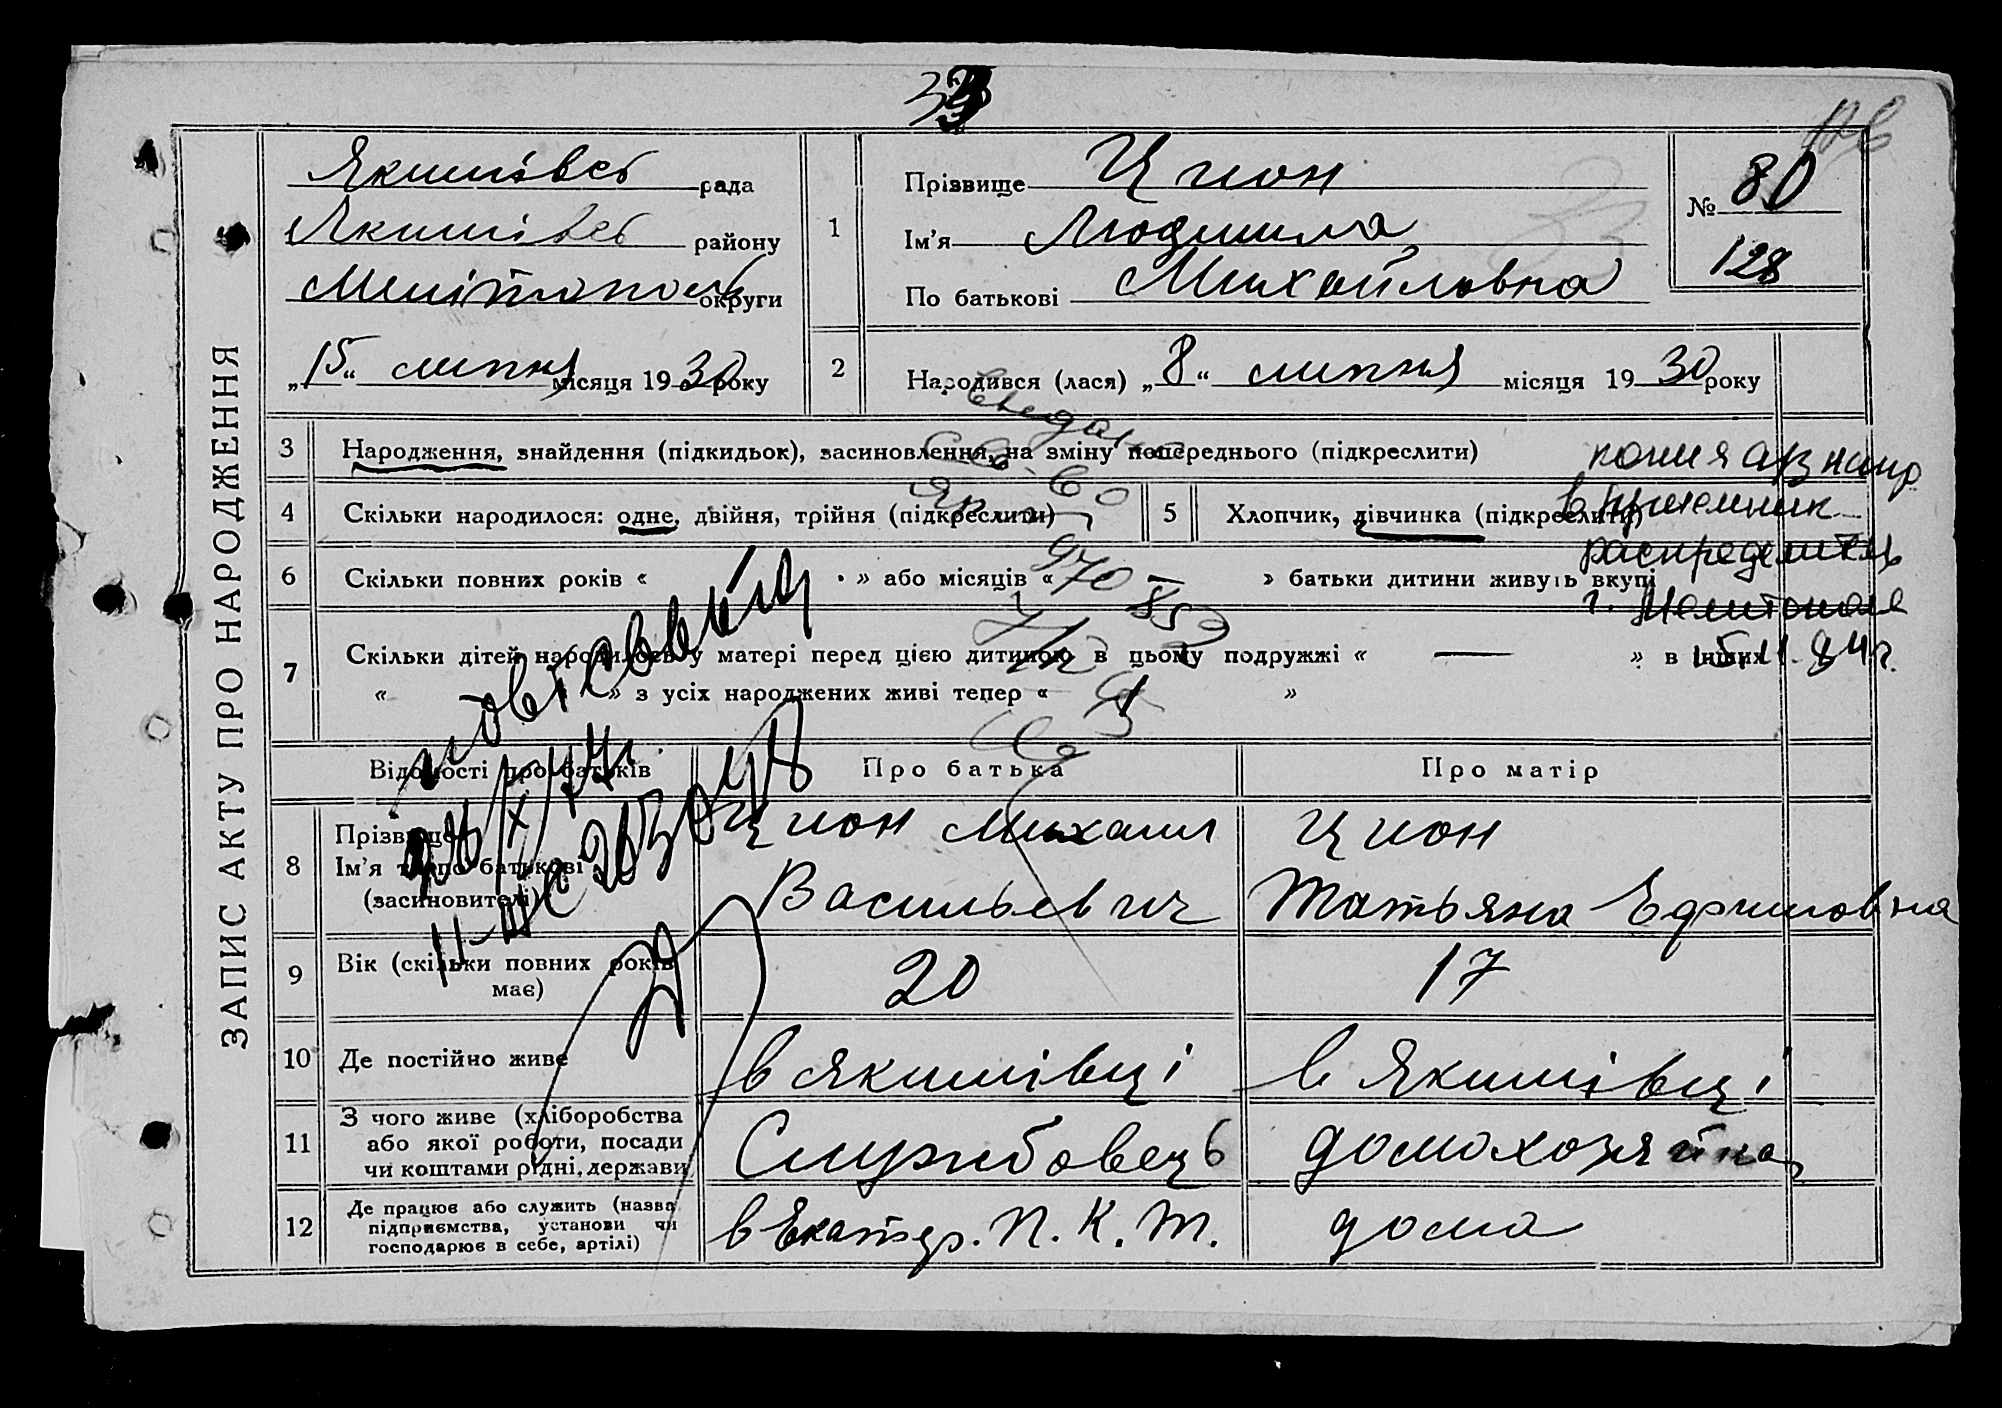 ЗАПИС АКТУ ПРО НАРОДЖЕННЯ
Якимівсь рада
Якимівсь району
Мелітополь округи
„15“ липня місяця 1930 року
1
Прізвище Цион
Ім'я Людмила
По батькові Михайловна
№ 80
128
2
Народився (лася) „8“ липня місяця 1930 року
3 Народження, знайдення (підкидьок), засиновлення, на зміну попереднього (підкреслити)
4 Скільки народилося: одне, двійня, трійня (підкреслити)
5 Хлопчик, дівчинка (підкреслити)
копия
в приемник
распределитель
г. Мелитополя
6 Скільки повних років « » або місяців « » батьки дитини живуть вкупі
7 Скільки дітей народилось у матері перед цією дитиною в цьому подружжі « — » в інших
« » з усіх народжених живі тепер « 1 »
Відомості про батьків
Про батька
Про матір
8 Прізвище
Ім'я та по батькові
(засиновителі)
Цион Михаил
Васильевич
Цион
Татьяна Ефимовна
9 Вік (скільки повних років
має)
20
17
10 Де постійно живе
в Якимівці
в Якимівці
11 З чого живе (хліборобства
або якої роботи, посади
чи коштами рідні, держави
Службовець
домохозяйка
12 Де працює або служить (назва
підприємства, установи чи
господарює в себе, артілі)
в Екатер. П. К. Т.
дома